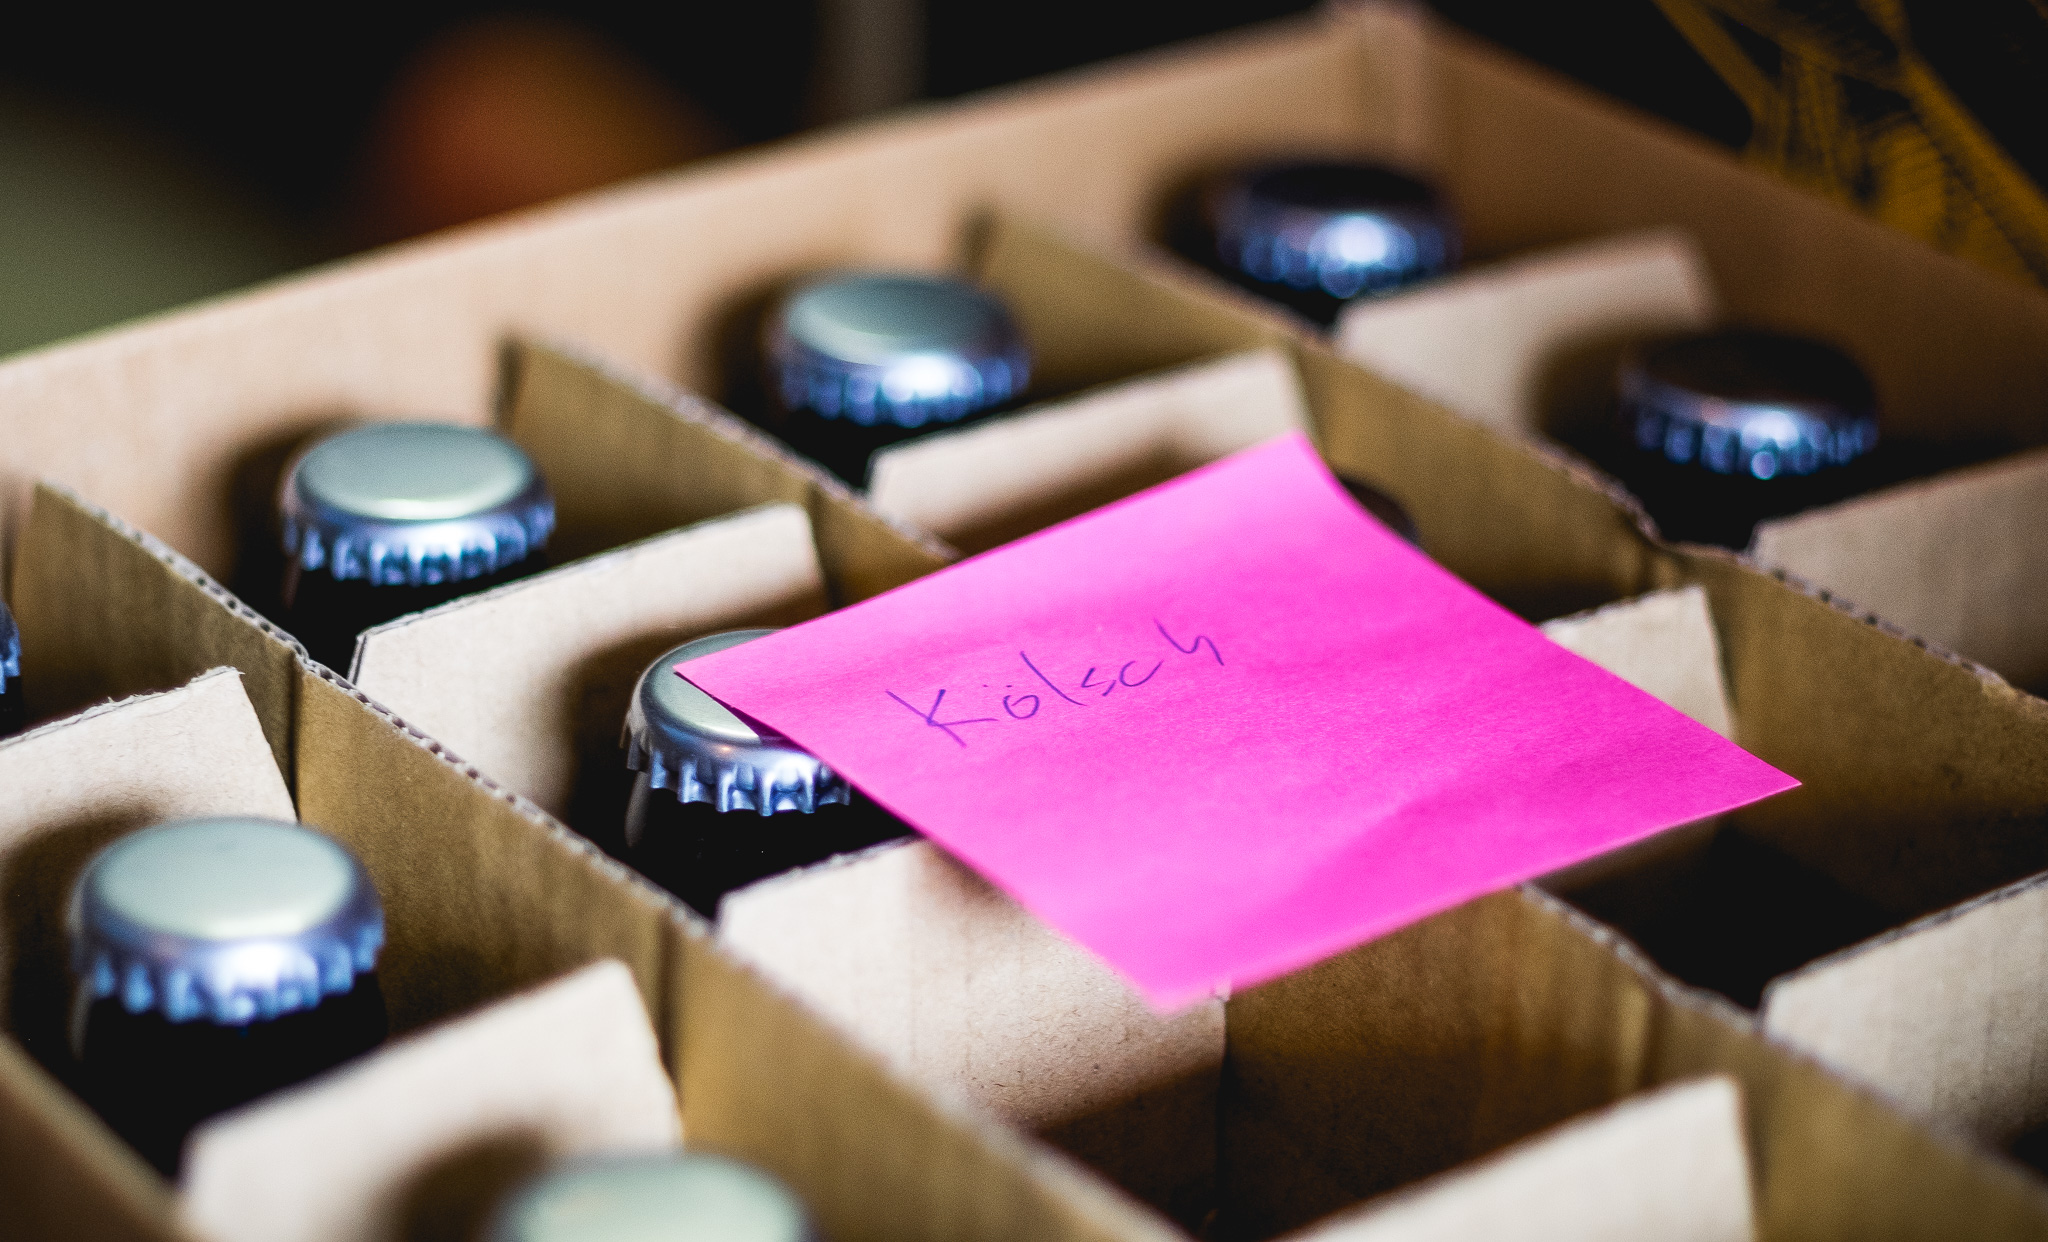 Kölsch